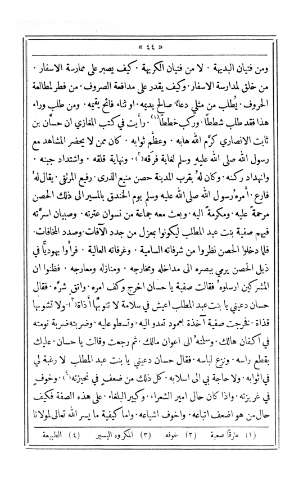 « ٤٤ »
ومن فتيان البديهة لا من فتيان الكريهة. كيف يصبر على ممارسة الاسفار.
من خلق لمدارسة الاسفار. وكيف يقدر على مدافعة الصروف. من فطر لمطالعة
الحروف. يُطلب من مثلي دعاء صالح يديمه. او ثناء فائح يقيمه. ومن طلب وراء
هذا فقد طلب شططاً. وركب خططاً(١). رأيت في كتب المغازي ان حسان بن
ثابت الانصاري كرّم الله مآبه. وعظّم ثوابه. كان ممن لا يحضر المشاهد مع
رسول الله صلى الله عليه وسلم لغاية فرقه(٢). ونهاية قلقه. واشتداد جبنه.
وانهداد ركنه. وكان له بقرب المدينة حصن منيع الذرى. رفيع المرتقى. يقال له
فارع. أمره رسول الله صلى الله عليه وسلم يوم الخندق بالمسير الى ذلك الحصن
مرحمة عليه. ومكرمة اليه. وبعث معه جماعة من نسوان عترته. وصبيان اسرته
فيهم صفية بنت عبد المطلب ليكونوا بمعزل من جدد الآفات. وصدد المخافات.
فلما دخلوا الحصن نظروا من شرفاته السامية. وغرفاته العالية. فرأوا يهوديًّا في
ذيل الحصن يرمي ببصره الى مداخله ومخارجه. ومنازله ومعارجه. فظنوا ان
المشركين ارسلوه. فقالت صفية يا حسان اخرج وكف امره. واتق شره. فقال
حسان دعيني يا بنت عبد المطلب اعيش في سلامة لا تنوبها أذاة(٣). ولا تشوبها
قذاة. فخرجت صفية آخذة بعمود تعدو اليه. وتسطو عليه. وضربته ضربة نومته
في اكفان هالك. وسلمته الى اعوان مالك. ثم رجعت وقالت يا حسان. عليك
بقطع راسه. ونزع لباسه. فقال حسان دعيني يا بنت عبد المطلب لا رغبة لي
في اثوابه. ولا حاجة بي الى اسلابه. كل ذلك من ضعف في نحيزته(٤). وخوف
في غريزته. واذا كان حال امير الشعراء. وكبير البلغاء. على هذه الصفة فكيف
حال من هو اضعف اتباعه. واخوف اشياعه. واما كيفية ما يسر الله تعالى لمولانا
(٢) خوفه (٣) المكروه اليسير (٤) الطبيعة